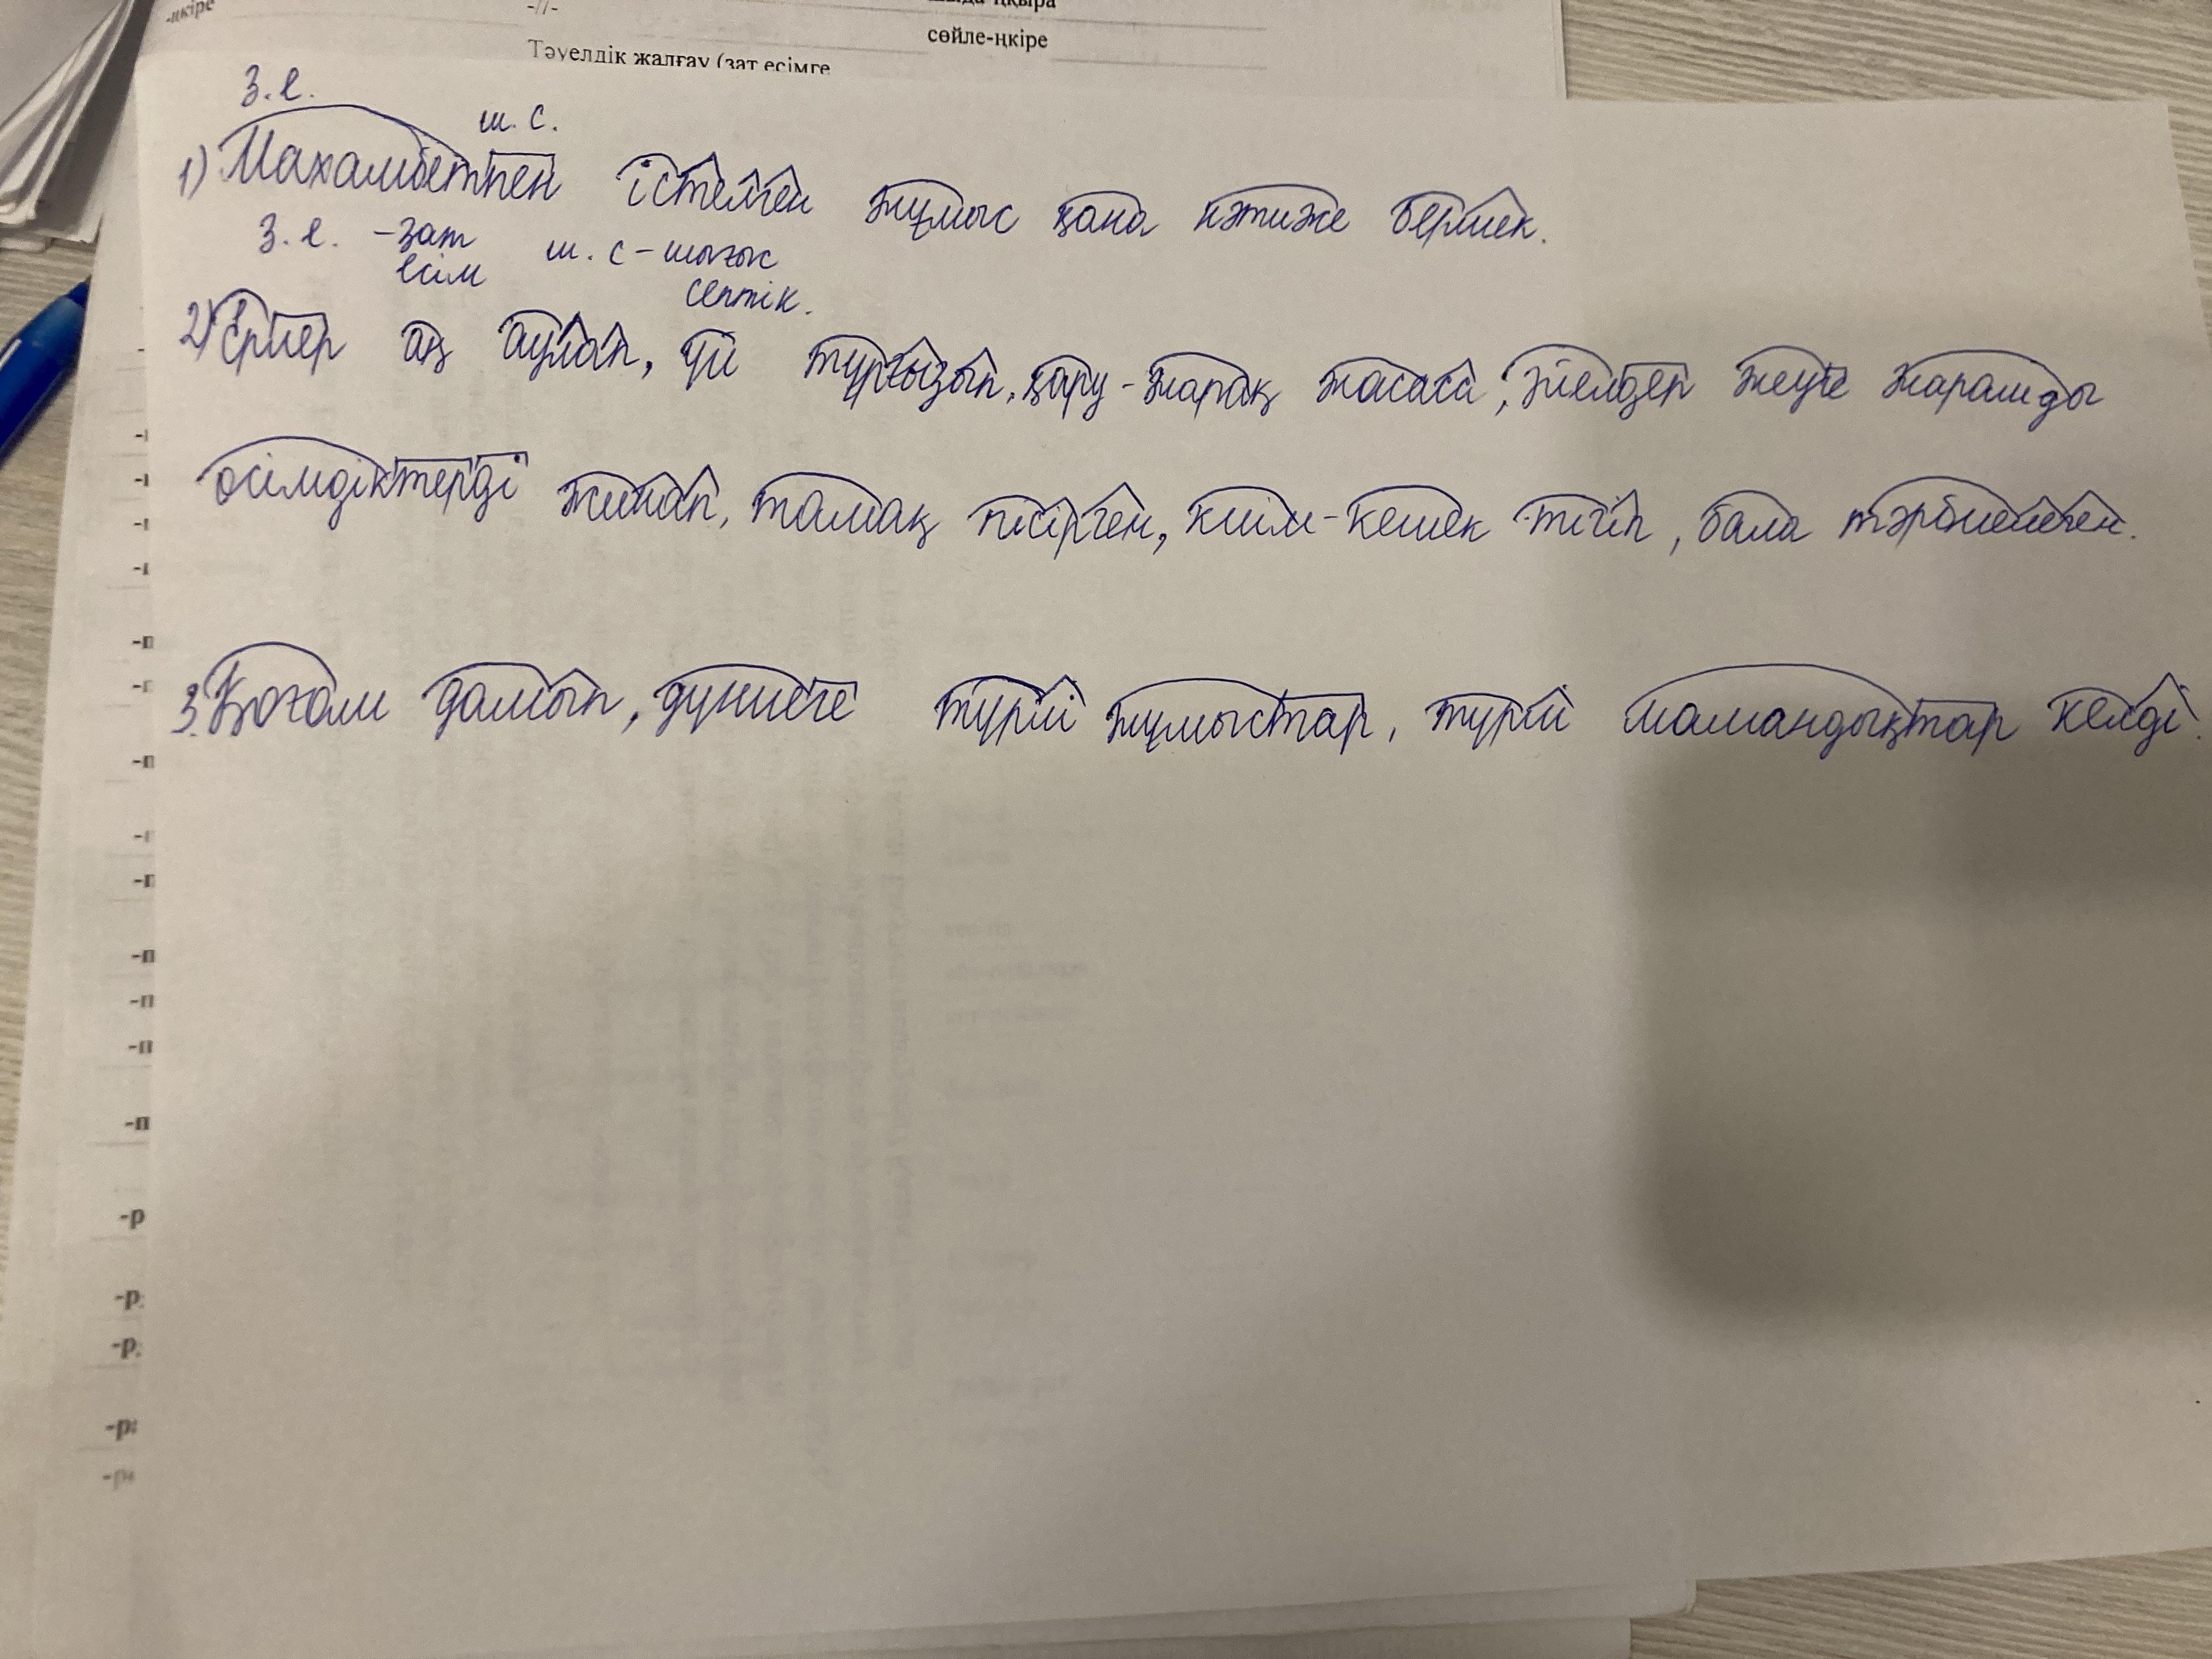 -нкіре
-//-
шыда-ңқыра
сөйле-ңкіре
Тәуелдік жалғау (зат есімге
З.е.
ш.с.
1) Махамбетпен істелген жұмыс қана нәтиже бермек.
З.е. -зат есім ш.с-шығыс септік.
2) Ерлер аң аулап, үй тұрғызып, қару-жарақ жасаса, әйелдер жеуге жарамды
өсімдіктерді жинап, тамақ пісірген, киім-кешек тігіп, бала тәрбиелеген.
3. Қоғам дамып, дүниеге түрлі жұмыстар, түрлі мамандықтар келді.